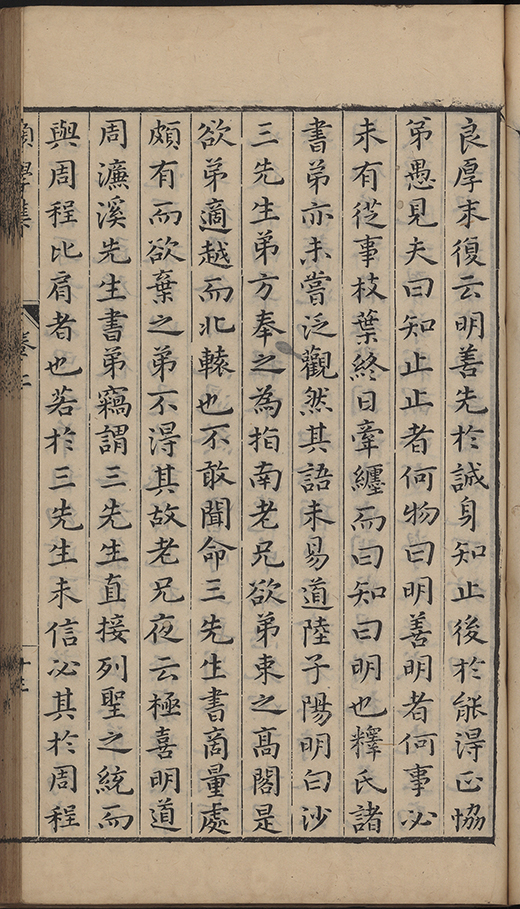 良厚末復云明善先於誠身知止後於能得正恊
弟愚見夫曰知止止者何物曰明善明者何事必
未有從事枝葉終日牽纏而曰知曰明也釋氏諸
書弟亦未嘗泛觀然其語未易道陸子陽明白沙
三先生弟方奉之為指南老兄欲弟束之髙閣是
欲弟適越而北轅也不敢聞命三先生書商量處
頗有而欲棄之弟不得其故老兄夜云極喜明道
周濂溪先生書弟竊謂三先生直接列聖之統而
與周程比肩者也若於三先生未信必其於周程
學集